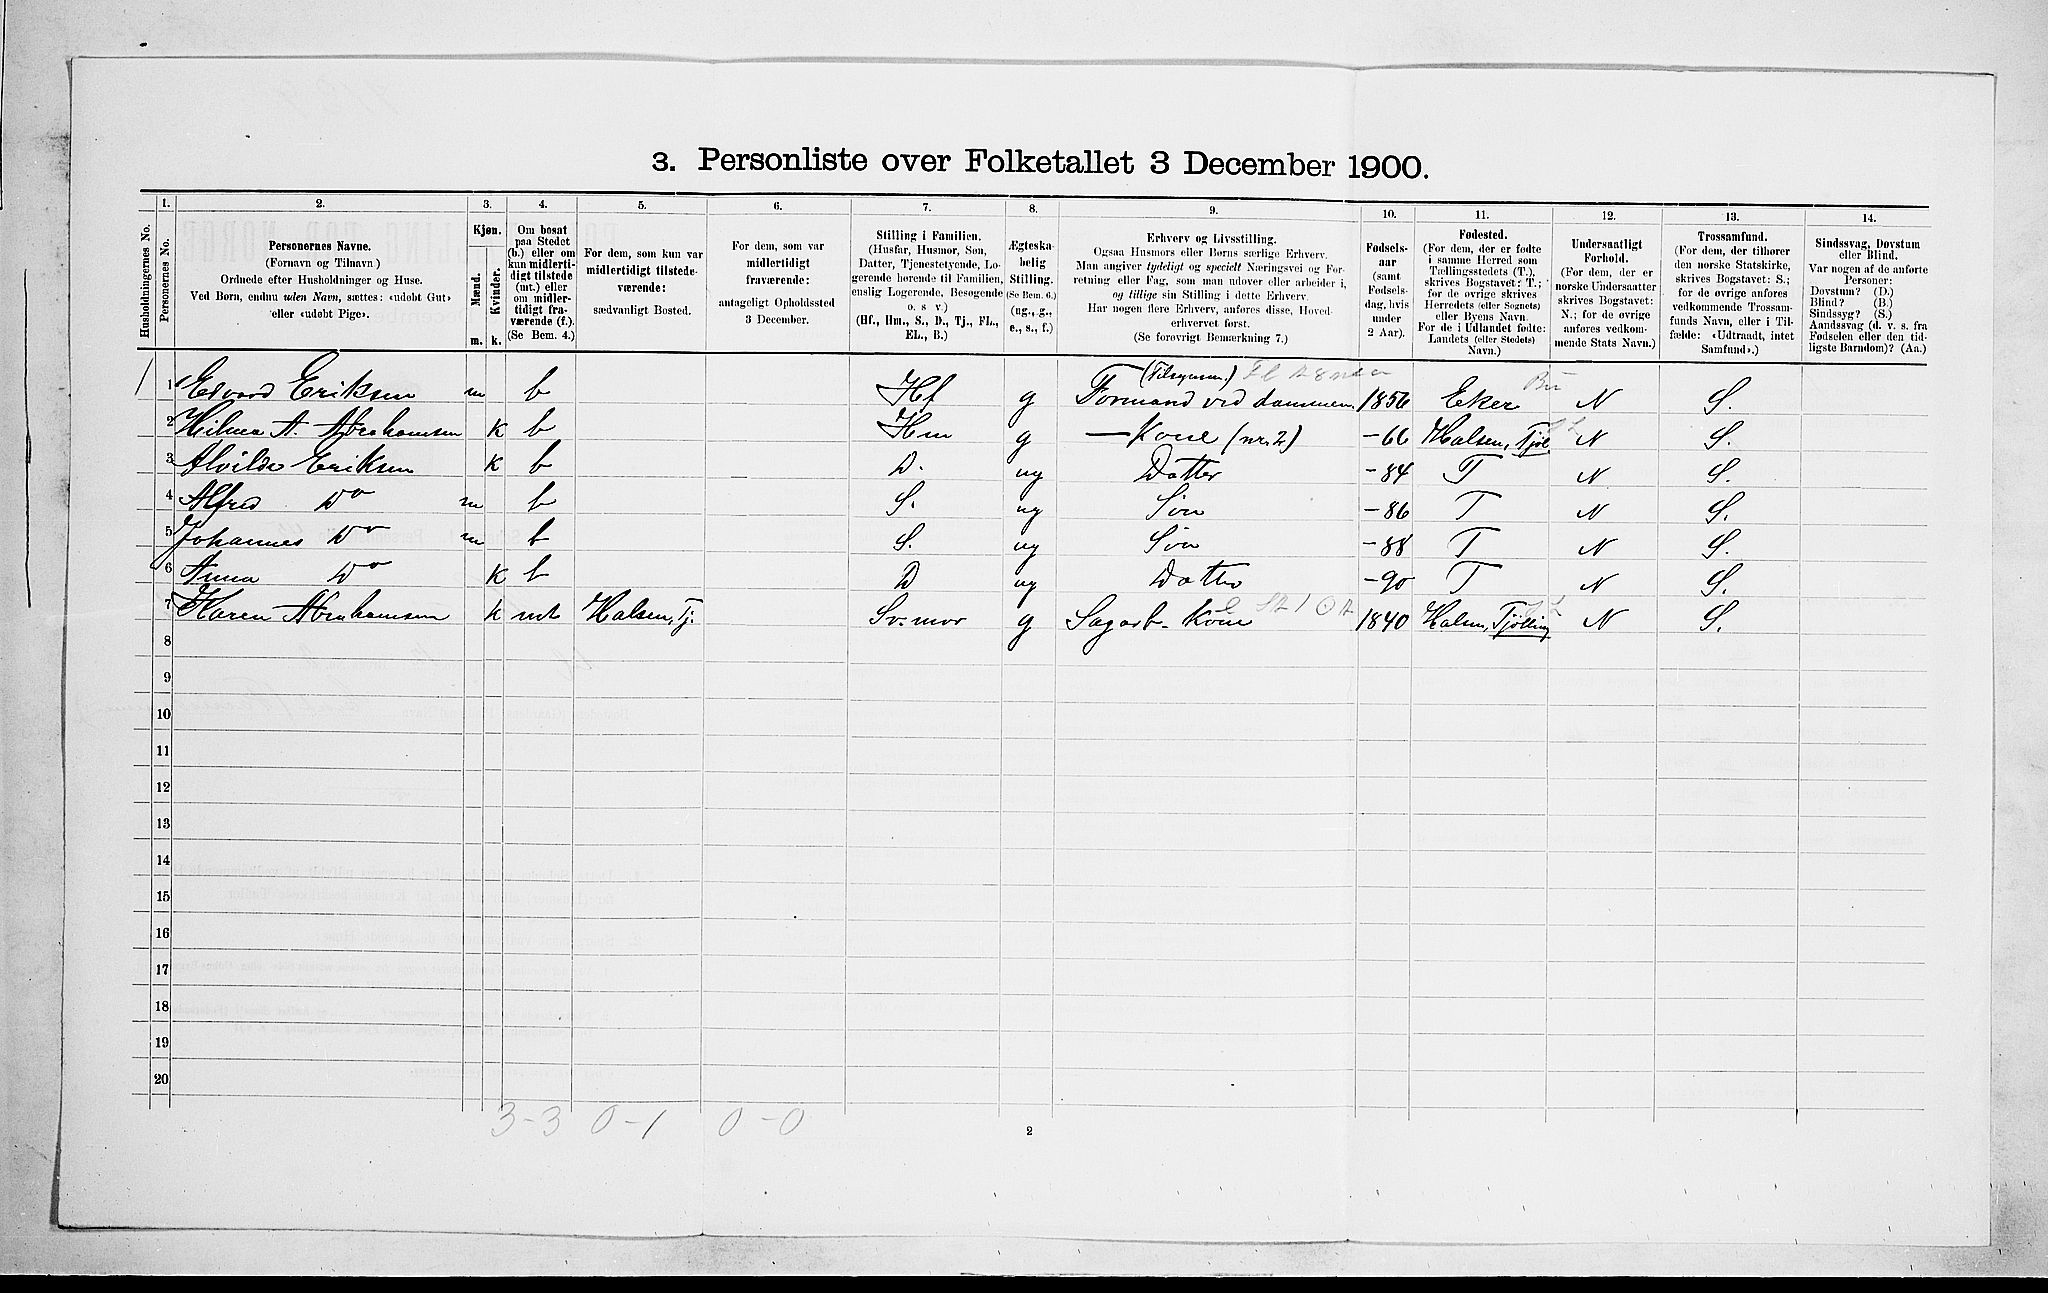 3. Personliste over Folketallet 3 December 1900.
Husholdningernes No.
1.
Personernes No.
2.
Personernes Navne.
(Fornavn og Tilnavn)
Ordnede efter Husholdninger og Huse.
Ved Børn, endnu uden Navn, sættes: «udøbt Gut»
eller «udøbt Pige».
3.
Kjøn.
Mænd.
m.
Kvinder.
k.
4.
Om bosat
paa Stedet
(b.) eller om
kun midlerti-
digt tilstede
(mt.) eller
om midler-
tidigt fra-
værende (f.).
(Se Bem. 4.)
5.
For dem, som kun var
midlertidigt tilstede-
værende:
sædvanligt Bosted.
6.
For dem, som var
midlertidigt
fraværende:
antageligt Opholdssted
3 December.
7.
Stilling i Familien.
(Husfar, Husmor, Søn,
Datter, Tjenestetyende, Lo-
gerende hørende til Familien,
enslig Logerende, Besøgende
o. s. v.)
(Hf., Hm., S., D., Tj., FL.,
EL., B.)
8.
Ægteska-
belig
Stilling.
(Se Bem. 6.)
(ug., g.,
e., s., f.)
9.
Erhverv og Livsstilling.
Ogsaa Husmors eller Børns særlige Erhverv.
Man angiver tydeligt og specielt Næringsvei og For-
retning eller Fag, som man udøver eller arbeider i,
og tillige sin Stilling i dette Erhverv.
Har nogen flere Erhverv, anføres disse, Hoved-
erhvervet først.
(Se forøvrigt Bemærkning 7.)
10.
Fødsels-
aar
(samt
Fødsels-
dag, hvis
under
2 Aar).
11.
Fødested.
(For dem, der er fødte
i samme Herred som
Tællingsstedets (T.),
skrives Bogstavet: T.;
for de øvrige skrives
Herredets (eller Sognets)
eller Byens Navn.
For de i Udlandet fødte:
Landets (eller Stedets)
Navn.)
12.
Undersaatligt
Forhold.
(For dem, der er
norske Undersaatter
skrives Bogstavet:
N.; for de øvrige
anføres vedkom-
mende Stats Navn.)
13.
Trossamfund.
(For dem, der tilhører
den norske Statskirke,
skrives Bogstavet: S.;
for de øvrige anføres
vedkommende Trossam-
funds Navn, eller i Til-
fælde: «Udtraadt, intet
Samfund».)
14.
Sindssvag, Døvstum
eller Blind.
Var nogen af de anførte
Personer:
Døvstum? (D.)
Blind? (B.)
Sindssyg? (S.)
Aandssvag (d. v. s. fra
Fødselen eller den tid-
ligste Barndom)? (Aa.)
(Tilsynsm.)
1 1 Edvard Eriksen m b Hf g Formand ved dammen 1856 Eker Bu N S.
2 Hilma A. Abrahamsen k b Hm g — Kone (nr. 2) -66 Halsen, Tjøl. N S.
3 Alvilde Eriksen k b D. ug Datter -84 T N S.
4 Alfred Do m b S. ug Søn -86 T N S.
5 Johannes Do m b S. ug Søn -88 T N S.
6 Anna Do k b D ug Datter -90 T N S.
7 Karen Abrahamsen k mt Halsen, Tj. Sv.mor g Sagarb. Kone 1840 Halsen, Tjølling N S.
8
9
10
11
12
13
14
15
16
17
18
19
20
3-3 0-1 0-0
2